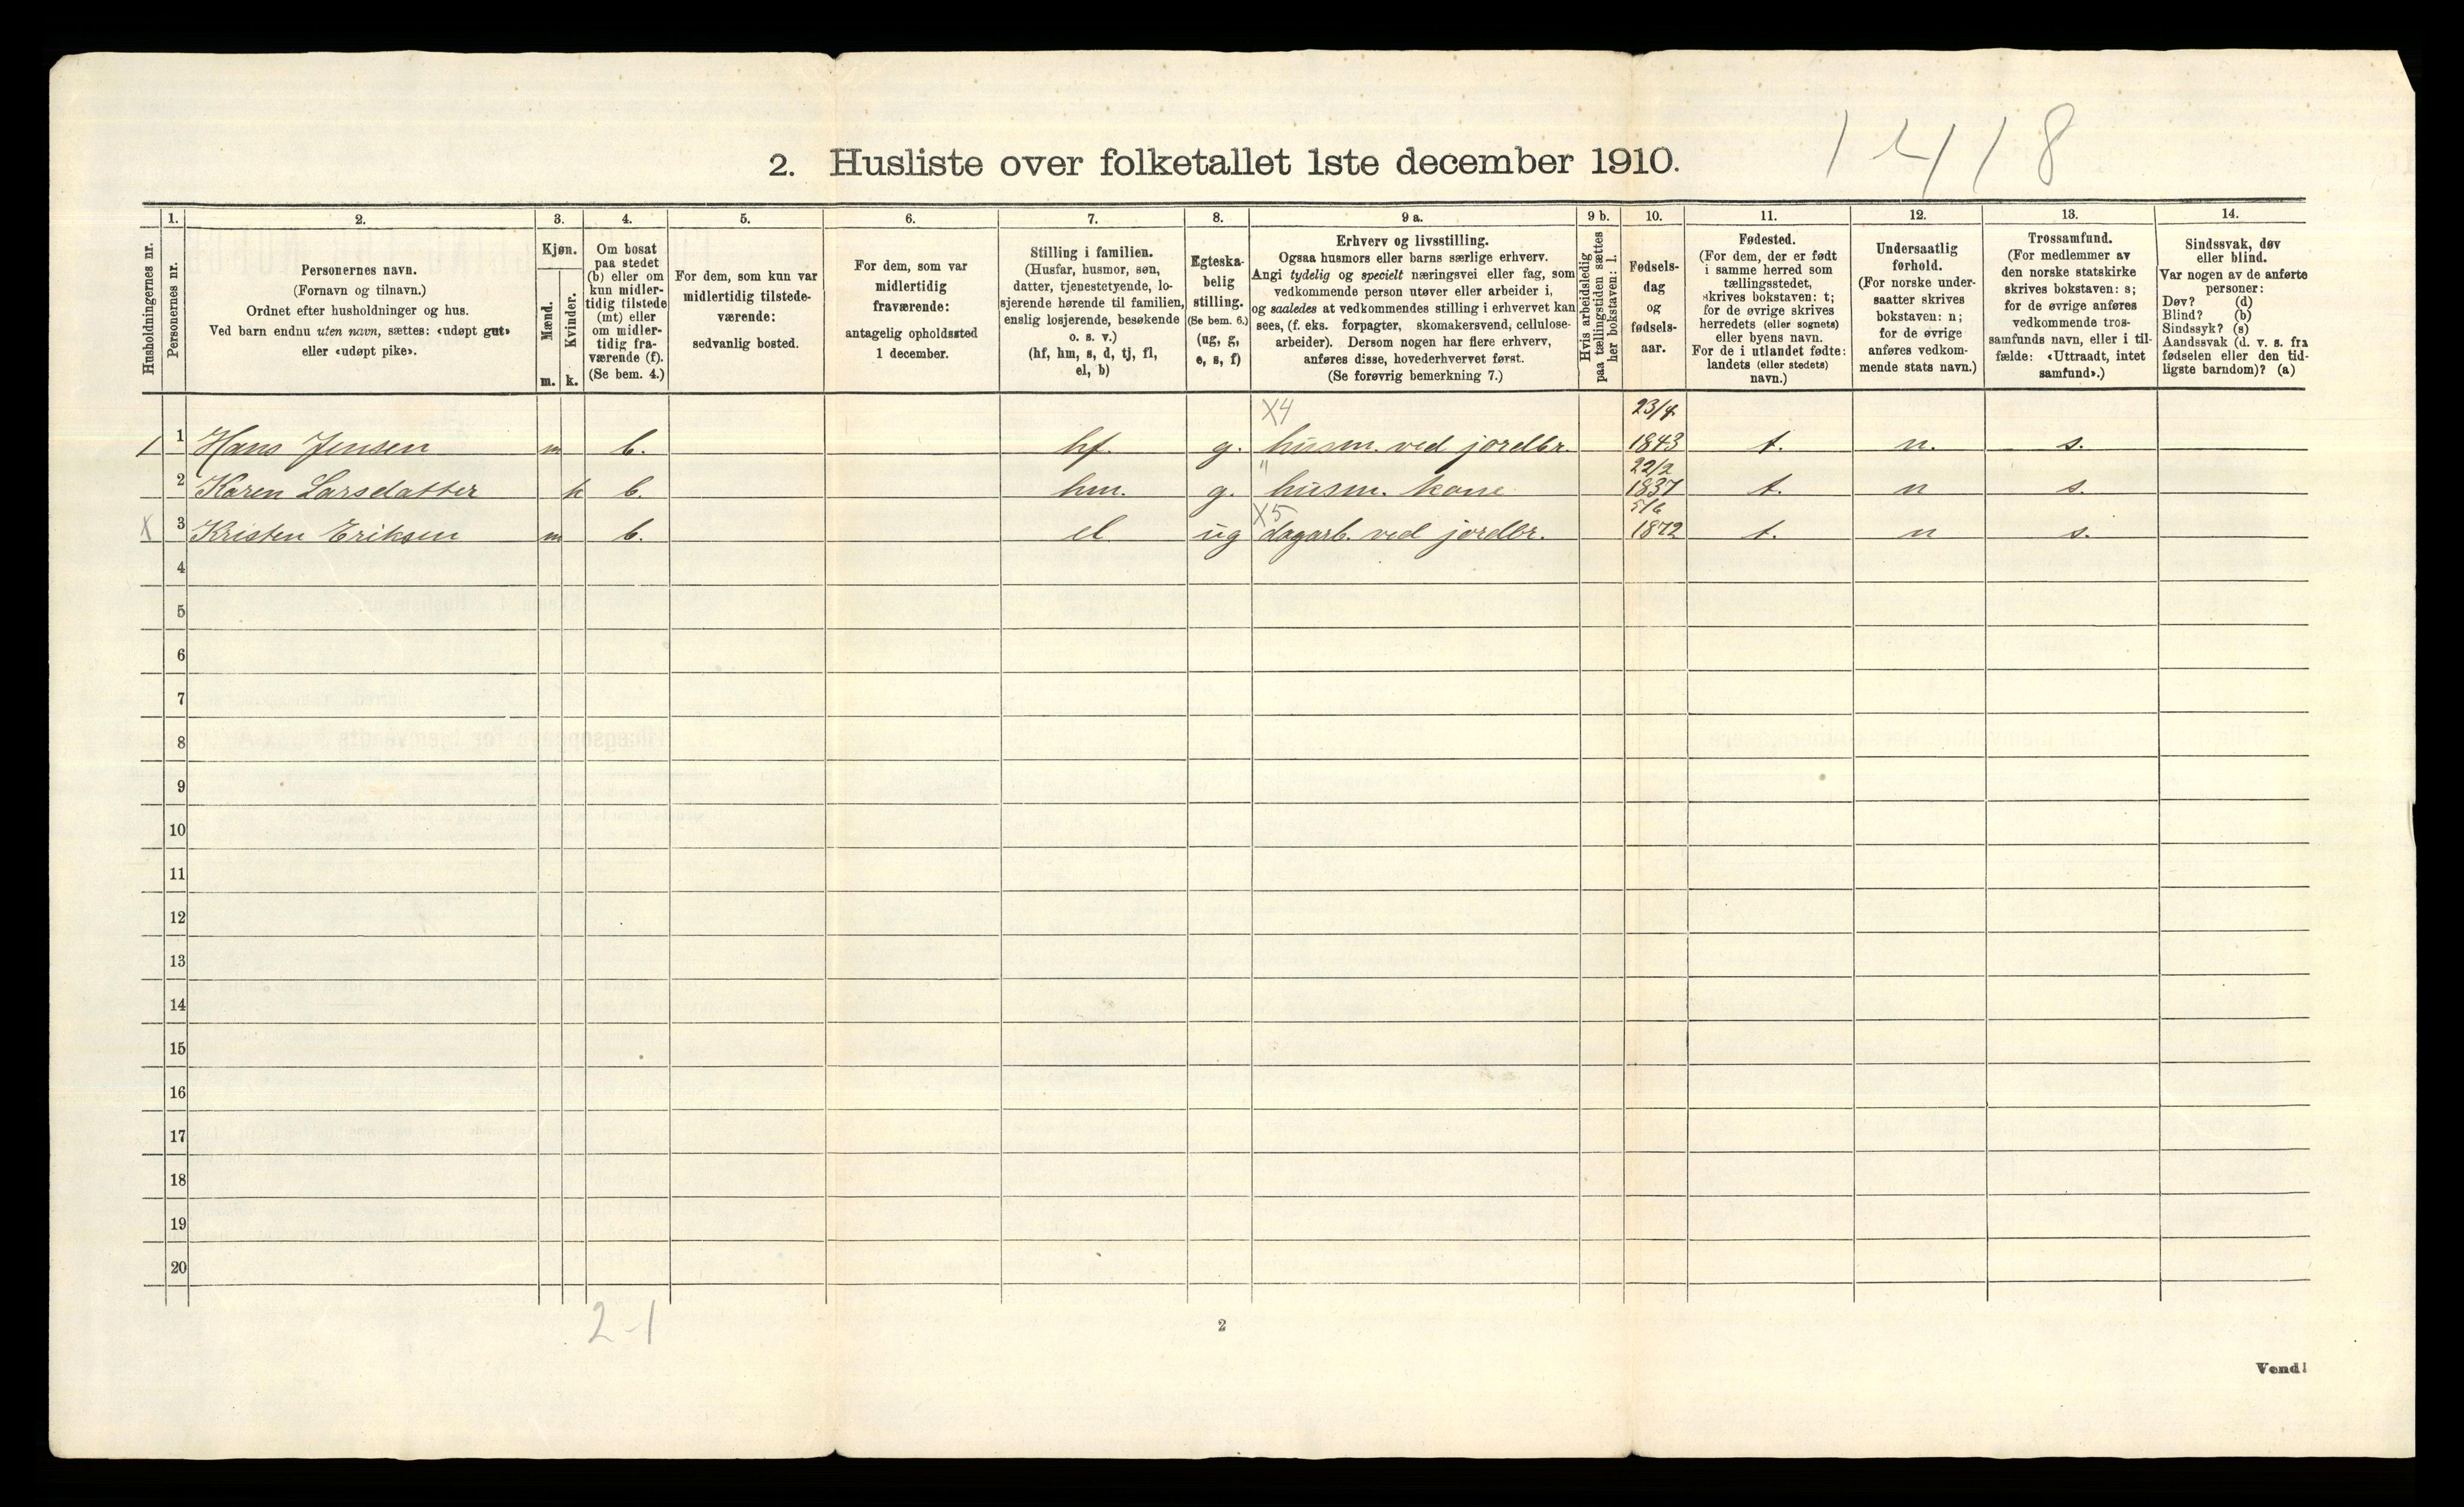 1418
2. Husliste over folketallet 1ste december 1910.
Husholdningernes nr.
1.
Personernes nr.
2.
Personernes navn.
(Fornavn og tilnavn.)
Ordnet efter husholdninger og hus.
Ved barn endnu uten navn, sættes: «udøpt gut»
eller «udøpt pike».
3.
Kjøn.
Mænd.
Kvinder.
m. k.
4.
Om bosat
paa stedet
(b) eller om
kun midler-
tidig tilstede
(mt) eller
om midler-
tidig fra-
værende (f).
(Se bem. 4.)
5.
For dem, som kun var
midlertidig tilstede-
værende:
sedvanlig bosted.
6.
For dem, som var
midlertidig
fraværende:
antagelig opholdssted
1 december.
7.
Stilling i familien.
(Husfar, husmor, søn,
datter, tjenestetyende, lo-
sjerende hørende til familien,
enslig losjerende, besøkende
o. s. v.)
(hf, hm, s, d, tj, fl,
el, b)
8.
Egteska-
belig
stilling.
(Se bem. 6.)
(ug, g,
e, s, f)
9 a.
Erhverv og livsstilling.
Ogsaa husmors eller barns særlige erhverv.
Angi tydelig og specielt næringsvei eller fag, som
vedkommende person utøver eller arbeider i,
og saaledes at vedkommendes stilling i erhvervet kan
sees, (f. eks. forpagter, skomakersvend, cellulose-
arbeider). Dersom nogen har flere erhverv,
anføres disse, hovederhvervet først.
(Se forøvrig bemerkning 7.)
9 b.
Hvis arbeidsledig
paa tællingstiden sættes
her bokstaven: l.
10.
Fødsels-
dag
og
fødsels-
aar.
11.
Fødested.
(For dem, der er født
i samme herred som
tællingsstedet,
skrives bokstaven: t;
for de øvrige skrives
herredets (eller sognets)
eller byens navn.
For de i utlandet fødte:
landets (eller stedets)
navn.)
12.
Undersaatlig
forhold.
(For norske under-
saatter skrives
bokstaven: n;
for de øvrige
anføres vedkom-
mende stats navn.)
13.
Trossamfund.
(For medlemmer av
den norske statskirke
skrives bokstaven: s;
for de øvrige anføres
vedkommende tros-
samfunds navn, eller i til-
fælde: «Uttraadt, intet
samfund».)
14.
Sindssvak, døv
eller blind.
Var nogen av de anførte
personer:
Døv? (d)
Blind? (b)
Sindssyk? (s)
Aandssvak (d. v. s. fra
fødselen eller den tid-
ligste barndom)? (a)
X4 23/4
1 1 Hans Jensen m b. hf. g. husm. ved jordbr. 1843 t. n. s.
" 22/2
2 Karen Larsdatter k b. hm. g. husm. kone 1837 t. n s.
X5 5/6
X 3 Kristen Eriksen m b. el. ug dagarb. ved jordbr. 1872 t. n s.
4
5
6
7
8
9
10
11
12
13
14
15
16
17
18
19
20
2-1
2
Vend!